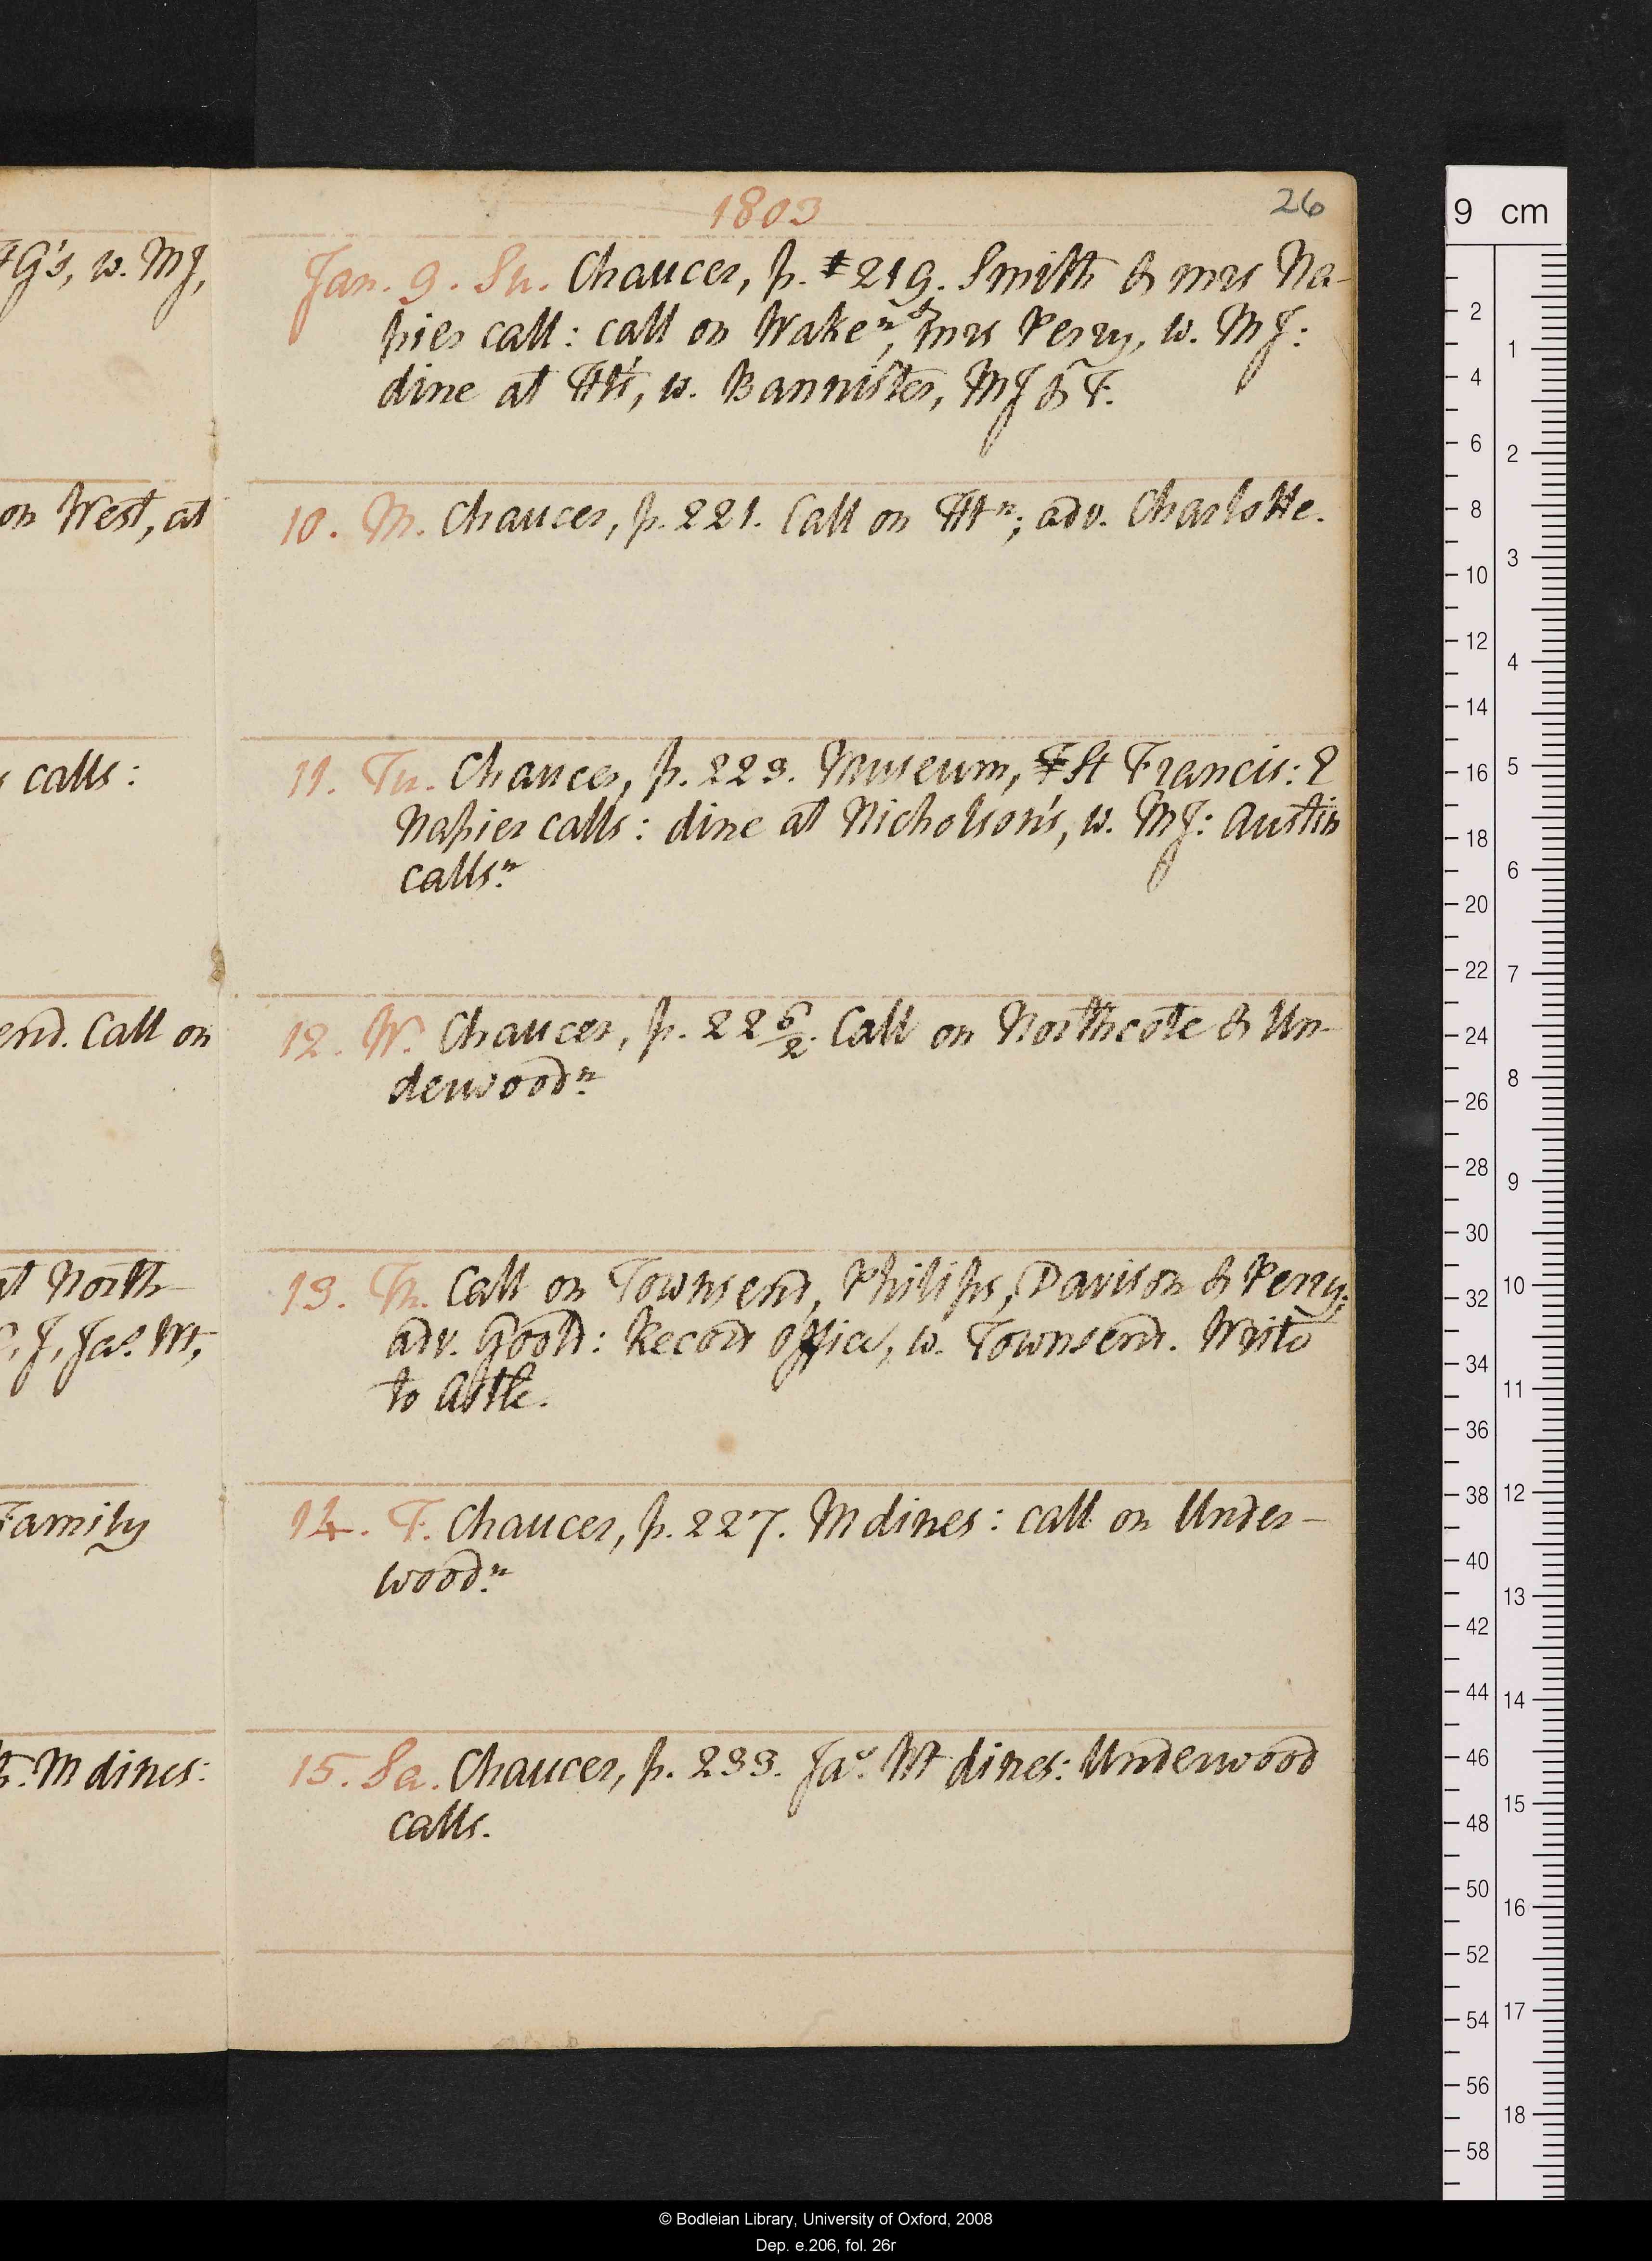 1803
26
Jan. 9. Su. Chaucer, p. 219. Smith & mrs Na-
pier call: call on Wakeⁿ, & mrs Perry, w. MJ:
dine at Ht's, w. Bannister, MJ & F.
10. M. Chaucer, p. 221. Call on Htⁿ; adv. Charlotte.
11. Tu. Chaucer, p. 223. Museum, St Francis: E
Napier calls: dine at Nicholson's, w. MJ: Austin
callsⁿ.
12. W. Chaucer, p. 22 6/2. Call on Northcote & Un-
derwoodⁿ.
13. Th. Call on Townsend, Philips, Davison & Perry;
adv. Goold: Record office, w. Townsend. Write
to Astle.
14. F. Chaucer, p. 227. M dines: call on Under-
woodⁿ.
15. Sa. Chaucer, p. 233. Jas. Mt dines: Underwood
calls.
G's, w. MJ,
on West, at
calls:
end. Call on
at North-
J, Jas. Mt,
Family
M dines:
9 cm
2
4
6
8
10
12
14
16
18
20
22
24
26
28
30
32
34
36
38
40
42
44
46
48
50
52
54
56
58
1
2
3
4
5
6
7
8
9
10
11
12
13
14
15
16
17
18
© Bodleian Library, University of Oxford, 2008
Dep. e.206, fol. 26r